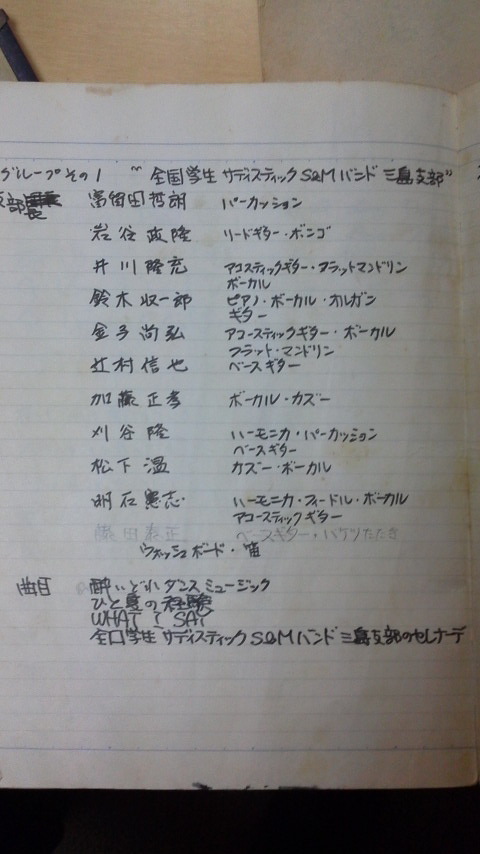 グループその1 〝全国学生サディスティックS&Mバンド三島支部〟
支部長 富留田哲朗 パーカッション
岩谷政隆 リードギター・ボンゴ
井川隆充 アコスティックギター・フラットマンドリン
ボーカル
鈴木収一郎 ピアノ・ボーカル・オルガン
ギター
金子尚弘 アコースティックギター・ボーカル
フラット・マンドリン
辻村信也 ベースギター
加藤正孝 ボーカル・カズー
刈谷隆 ハーモニカ・パーカッション
ベースギター
松下温 カズー・ボーカル
明石憲志 ハーモニカ・フィードル・ボーカル
アコースティックギター
藤田泰正 ベースギター・バケツたたき
ウォッシュボード・笛
曲目 酔いどれダンスミュージック
ひと夏の経験
WHAT I SAY
全口学生サディスティックS&Mバンド三島支部のセレナーデ